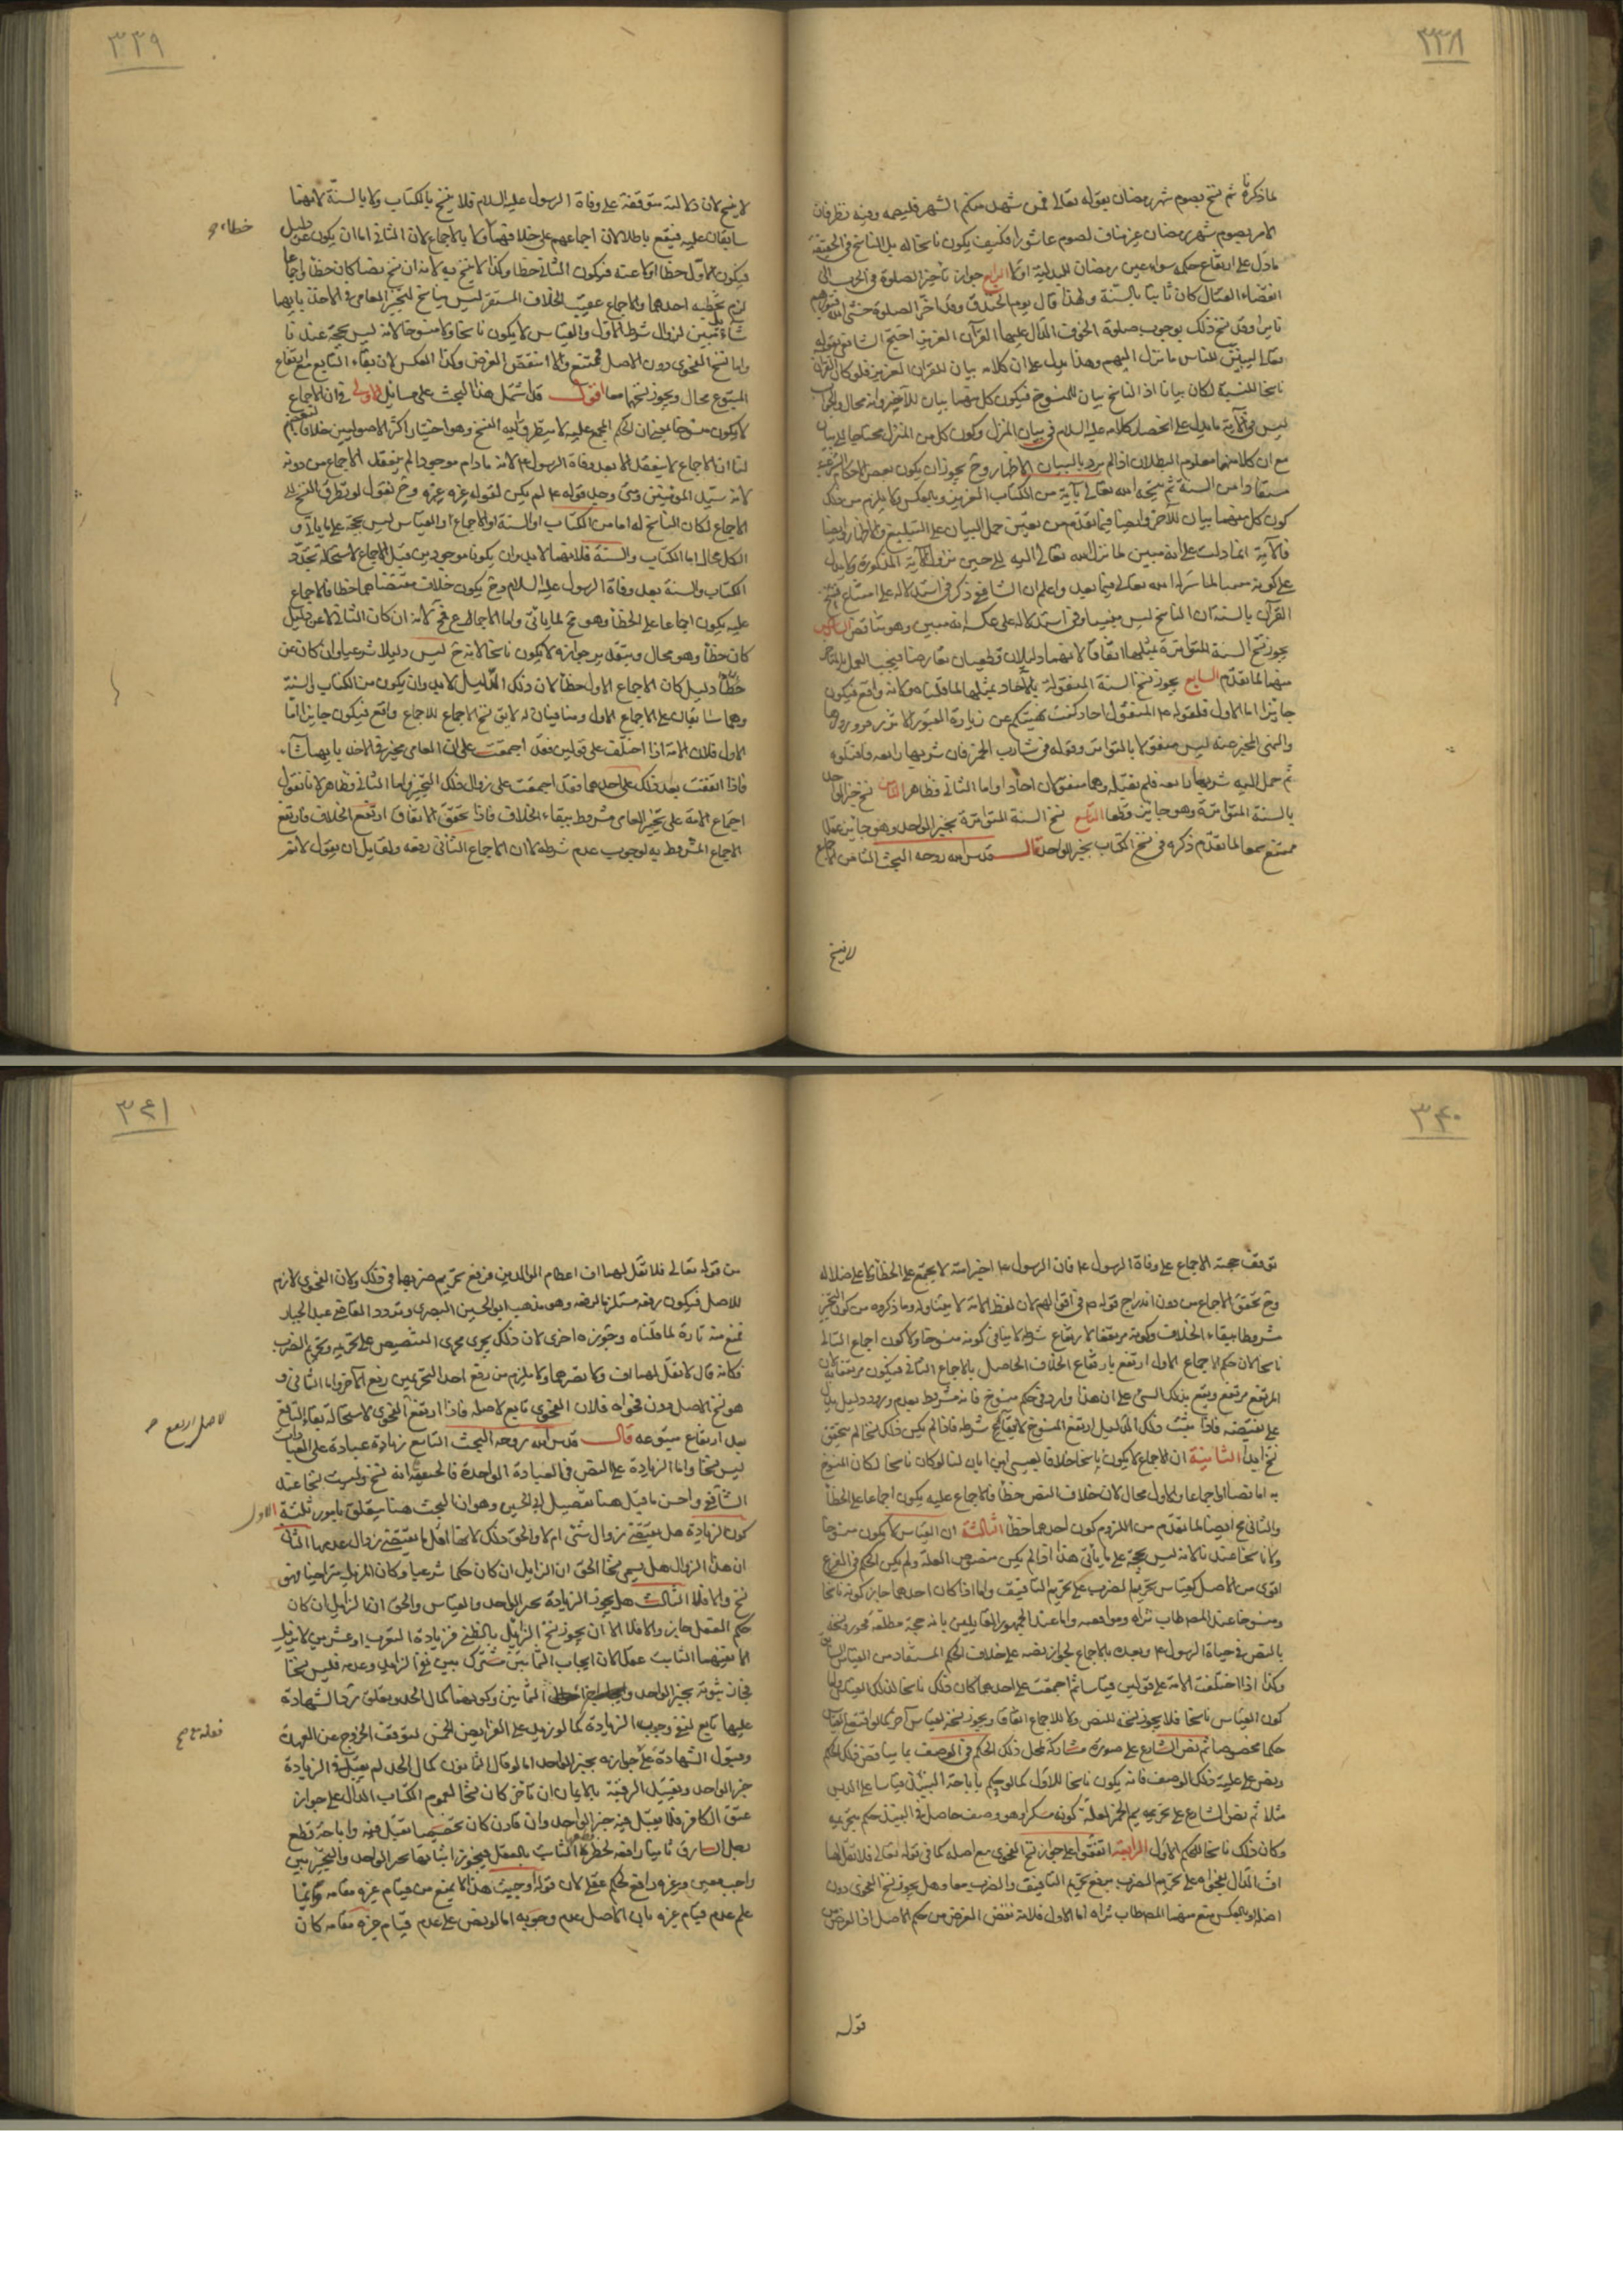 ٣٣٨
لما ذكرنا ثم نسخ بصوم شهر رمضان بقوله تعالى فمن شهد منكم الشهر فليصمه وفيه نظر فان
الامر بصوم شهر رمضان غير مناف لصوم عاشورا فكيف يكون ناسخا له بل الناسخ في الحقيقة
ما دل على ارتفاع حكمه سواء عين رمضان للبدلية او لا الرابع جواز تأخير الصلوة في الحرب الى
انقضاء القتال كان ثابتا بالسنة ولهذا قال يوم الخندق وقد اخر الصلوة حشى الله قبورهم
نارا وقد نسخ ذلك بوجوب صلوة الخوف الدال عليها القرآن العزيز احتج الشافعي بقوله
تعالى ليبين للناس ما نزل اليهم وهذا يدل على ان كلامه بيان للقرآن العزيز فلو كان القرآن
ناسخا للسنة لكان بيانا اذ الناسخ بيان للمنسوخ فيكون كل منهما بيان للآخر وانه محال والجواب
ليس في الآية ما يدل على انحصار كلامه عليه السلام في بيان المنزل وكون كل من المنزل محتاجا الى بيان
مع ان كلا منهما معلوم البطلان اذا لم يرد بالبيان الاظهار وح يجوز ان يكون بعض الاحكام الشرعية
مستفادا من السنة ثم نسخه الله تعالى بآية من الكتاب العزيز وبالعكس ولا يلزم من ذلك
كون كل منهما بيان للآخر وايضا فيما تقدم من تعين حمل البيان على التبليغ والاظهار وايضا
فالآية انما دلت على انه مبين لما نزل الله تعالى اليه الى حين نزول الآية المذكورة ولا يدل
على كونه مبينا لما سينزله الله تعالى فيما بعد واعلم ان الشافعي ذكر في استدلاله على امتناع نسخ
القرآن بالسنة ان الناسخ ليس مبينا وفي استدلاله على عكسه انه مبين وهو تناقض السادس
يجوز نسخ السنة المتواترة بمثلها اتفاقا لانهما دليلان قطعيان تعارضا فيجب العمل بالمتاخر
منهما لما تقدم السابع يجوز نسخ السنة المنقولة بالآحاد بمثلها لما قلناه ولانه واقع فيكون
جايزا اما الاول فلقوله ع المنقول احاد كنت نهيتكم عن زيارة القبور الا فزوروها
والنهي المخبر عنه ليس منقولا بالمتواتر وقوله في شارب الخمر فان شربها رابعه فاقتلوه
ثم حمل اليه شربها رابعه فلم يقتله وهما منقولان احادا واما الثاني فظاهر الثامن نسخ خبر الواحد
بالسنة المتواترة وهو جايز قطعا التاسع نسخ السنة المتواترة بخبر الواحد وهو جايز عقلا
ممتنع سمعا لما تقدم ذكره في نسخ الكتاب بخبر الواحد قال قدس الله روحه البحث الثامن الاجماع
لا ينسخ
٣٣٩
لا ينسخ لان دلالته متوقفة على وفاة الرسول عليه السلام فلا ينسخ بالكتاب ولا بالسنة لانهما
سابقان عليه فيقع باطلا لان اجماعهم على خلافهما ولا بالاجماع لان الثاني اما ان يكون عن دليل
فيكون الاول خطا او لا عنه فيكون الثاني خطا وكذا لا ينسخ به لانه ان نسخ نصا كان خطا واجماعا
لزم تخطيه احدهما والاجماع عقيب الخلاف المستقر ليس بناسخ لتخير العامي في الاخذ بايهما
شاء بل تبين لزوال شرط الاول والقياس لا يكون ناسخا ولا منسوخا لانه ليس بحجة عندنا
واما نسخ الفحوى دون الاصل فممتنع والا انتقض الغرض وكذا العكس لان بقاء التابع مع ارتفاع
المتبوع محال ويجوز نسخهما معا اقول قد اشتمل هذا البحث على مسائل الاولى في ان الاجماع
لا يكون منسوخا بمعنى ان الحكم المجمع عليه لا يتطرق اليه النسخ وهو اختيار اكثر الاصوليين خلافا لبعضهم
لنا ان الاجماع لا ينعقد الا بعد وفاة الرسول ع لانه ما دام موجودا لم ينعقد الاجماع من دونه
لانه سيد المؤمنين ومتى وجد قوله ع لم يكن لقول غيره عبرة وح نقول لو تطرق النسخ الى
الاجماع لكان الناسخ له اما من الكتاب او السنة او الاجماع او القياس ليس بحجة على ما يأتي و
الكل محال اما الكتاب والسنة فلانهما لا بد وان يكونا موجودين قبل الاجماع لاستحالة تجدد
الكتاب والسنة بعد وفاة الرسول عليه السلام وح يكون خلاف مقتضاهما خطا فالاجماع
عليه يكون اجماعا على الخطأ وهو مح لما ياتي واما الاجماع فمح لانه ان كان الثاني لا عن دليل
كان خطأ وهو محال وبتقدير جوازه لا يكون ناسخا لانه ح ليس دليلا شرعيا وان كان عن
دليل كان الاجماع الاول خطأ لان ذلك الدليل لا بد وان يكون من الكتاب والسنة
وهما سابقان على الاجماع الاول ومنافيان له لا يق نسخ الاجماع للاجماع واقع فيكون جايزا اما
الاول فلان الامة اذا اختلفت على قولين فقد اجمعت على ان العامي مخير في الاخذ بايهما شاء
فاذا اتفقت بعد ذلك على احدهما فقد اجمعت على زوال ذلك التخير واما الثاني فظاهر لانا نقول
اجماع الامة على تخير العامي مشروط ببقاء الخلاف فاذا تحقق الاتفاق ارتفع الخلاف فارتفع
الاجماع المشروط به لوجوب عدم شرطه لا ان الاجماع الثاني رفعه ولقايل ان يقول لا نم
خطاء
٣٤٠
توقف حجية الاجماع على وفاة الرسول ع فان الرسول ع اخبر امته لا يجتمع على الخطأ ولا على ضلاله
وح تحقق الاجماع من دون اندراج قوله ع في اقوالهم لان لفظ الامة لا يتناوله وما ذكروه من كون التخير
مشروطا ببقاء الخلاف وكونه مرتفعا لارتفاع شرطه لا ينافي كونه منسوخا ولا كون اجماع الثاني
ناسخا لان حكم الاجماع الاول ارتفع بارتفاع الخلاف الحاصل بالاجماع الثاني فيكون مرتفعا به لان
المرتفع مرتفع ويقع بذلك الشيء على ان هذا وارد في كل منسوخ فانه مشروط بعدم ورود دليل يدل
على نقيضه فاذا ثبت ذلك الدليل ارتفع المنسوخ لارتفاع شرطه فاذا لم يكن ذلك نسخا لم يتحقق
نسخ ابدا الثانية ان الاجماع لا يكون ناسخا خلافا لعيسى ابن ابان لنا لو كان ناسخا لكان المنسوخ
به اما نصا او اجماعا والاول محال لان خلاف النص خطأ فالاجماع عليه يكون اجماعا على الخطأ
والثاني مح ايضا لما تقدم من اللزوم كون احدهما خطأ الثالثة ان القياس لا يكون منسوخا
ولا ناسخا عندنا لانه ليس بحجة على ما يأتي هذا اذا لم يكن منصوص العلة ولم يكن الحكم في الفرع
اقوى من الاصل كقياس تحريم الضرب على تحريم التافيف واما اذا كان احدهما جاز كونه ناسخا
ومنسوخا عند المصطاب ثراه وموافقيه واما عند الجمهور القايلين بانه حجة مطلقة فجوزوا نسخه
بالنص في حياة الرسول ع وبعده بالاجماع لجواز نصه على خلاف الحكم المستفاد من القياس السابق
وكذا اذا اختلفت الامة على قولين قياسا ثم اجمعت على احدهما كان ذلك ناسخا لذلك القياس واما
كون القياس ناسخا فلا يجوز نسخه للنص ولا للاجماع اتفاقا ويجوز نسخه لقياس آخر كما لو اقتضى القياس
حكما مخصوصا ثم نص الشارع على صورة مشاركة لمحل ذلك الحكم في الوصف بما يناقض ذلك الحكم
ونص على علية ذلك الوصف فانه يكون ناسخا للاول كما لو حكم باباحة النبيذ قياسا على الدبس
مثلا ثم نص الشارع على تحريم الخمر لعلة كونه مسكرا وهو وصف حاصل في النبيذ حكم بتحريمه
وكان ذلك ناسخا للحكم الاول الرابعة اتفقوا على جواز نسخ الفحوى مع اصله كما في قوله تعالى فلا تقل لهما
اف الدال بفحواه على تحريم الضرب برفع تحريم التافيف والضرب معا وهل يجوز نسخ الفحوى دون
اصله او بالعكس منع منهما المصطاب ثراه اما الاول فلانه نقض الغرض من حكم الاصل اذ الغرض من
قوله
٣٤١
من قوله تعالى فلا تقل لهما اف اعظام الوالدين فرفع تحريم ضربهما في ذلك ولان الفحوى لازم
للاصل فيكون رفعه مستلزما لرفعه وهو مذهب ابي الحسين البصري وتردد القاضي عبد الجبار
فمنع منه تارة لما قلناه وجوزه اخرى لان ذلك يجري مجرى التنصيص على تحريمه وتحريم الضرب
فكانه قال لا تقل لهما اف ولا تضربهما ولا يلزم من رفع احد التحريمين رفع الآخر واما الثاني و
هو نسخ الاصل دون فحواه فلان الفحوى تابع لاصله فاذا ارتفع الفحوى لاستحالة بقاء التابع
بعد ارتفاع متبوعه قال قدس الله روحه البحث التاسع زيادة عبادة على العبادات
ليس نسخا واما الزيادة على النص في العبادة الواحدة فالحنفية انه نسخ وليست نسخا عند
الشافعي واحسن ما قيل هنا تفصيل ابي الحسين وهو ان البحث هنا يتعلق بامور ثلثة الاول
كون الزيادة هل يقتضي زوال شيء ام لا والحق ذلك لانها اقل ما تقتضي زوال عدمها الثاني
ان هذا الزوال هل يسمى نسخا الحق ان الزايل ان كان حكما شرعيا وكان المزيل متراخيا فهو
نسخ والا فلا الثالث هل يجوز الزيادة بخبر الواحد والقياس والحق ان الزايل ان كان
حكم العقل جاز والا فلا الا ان يجوز نسخ الزايل بالظني فزيادة التغريب او عشرين لا يزيل
الا نفيهما الثابت عقلا لان ايجاب الثمانين مشترك بين نفي الزايد وعدمه فليس نسخا
فجاز ثبوته بخبر الواحد الثمانين وكونهما كمال الحد وتعلق رد الشهادة
عليها تابع لنفي وجوب الزيادة كما لو زيد على الفرايض الخمس لتوقف الخروج عن العهدة
وقبول الشهادة على جوازه بخبر الواحد اما لو قال الثمانون كمال الحد لم يقبل في الزيادة
خبر الواحد وتقييد الرقبة بالايمان ان تأخر كان نسخا لعموم الكتاب الدال على جواز
عتق الكافر فلا يقبل فيه خبر الواحد وان قارن كان تخصيصا تقبل فيه واباحة قطع
رجل السارق ثانيا رافعه لحظر الثابت بالعقل فيجوز اثباتها بخبر الواحد والتخير بين
واجب معين وغيره رافع لحكم عقلي لان قوله اوجبت هذا لا يمنع من قيام غيره مقامه وانما
علم عدم قيام غيره بان الاصل عدم وجوبه اما لو نص على عدم قيام غيره مقامه كان
الاصل ارتفع